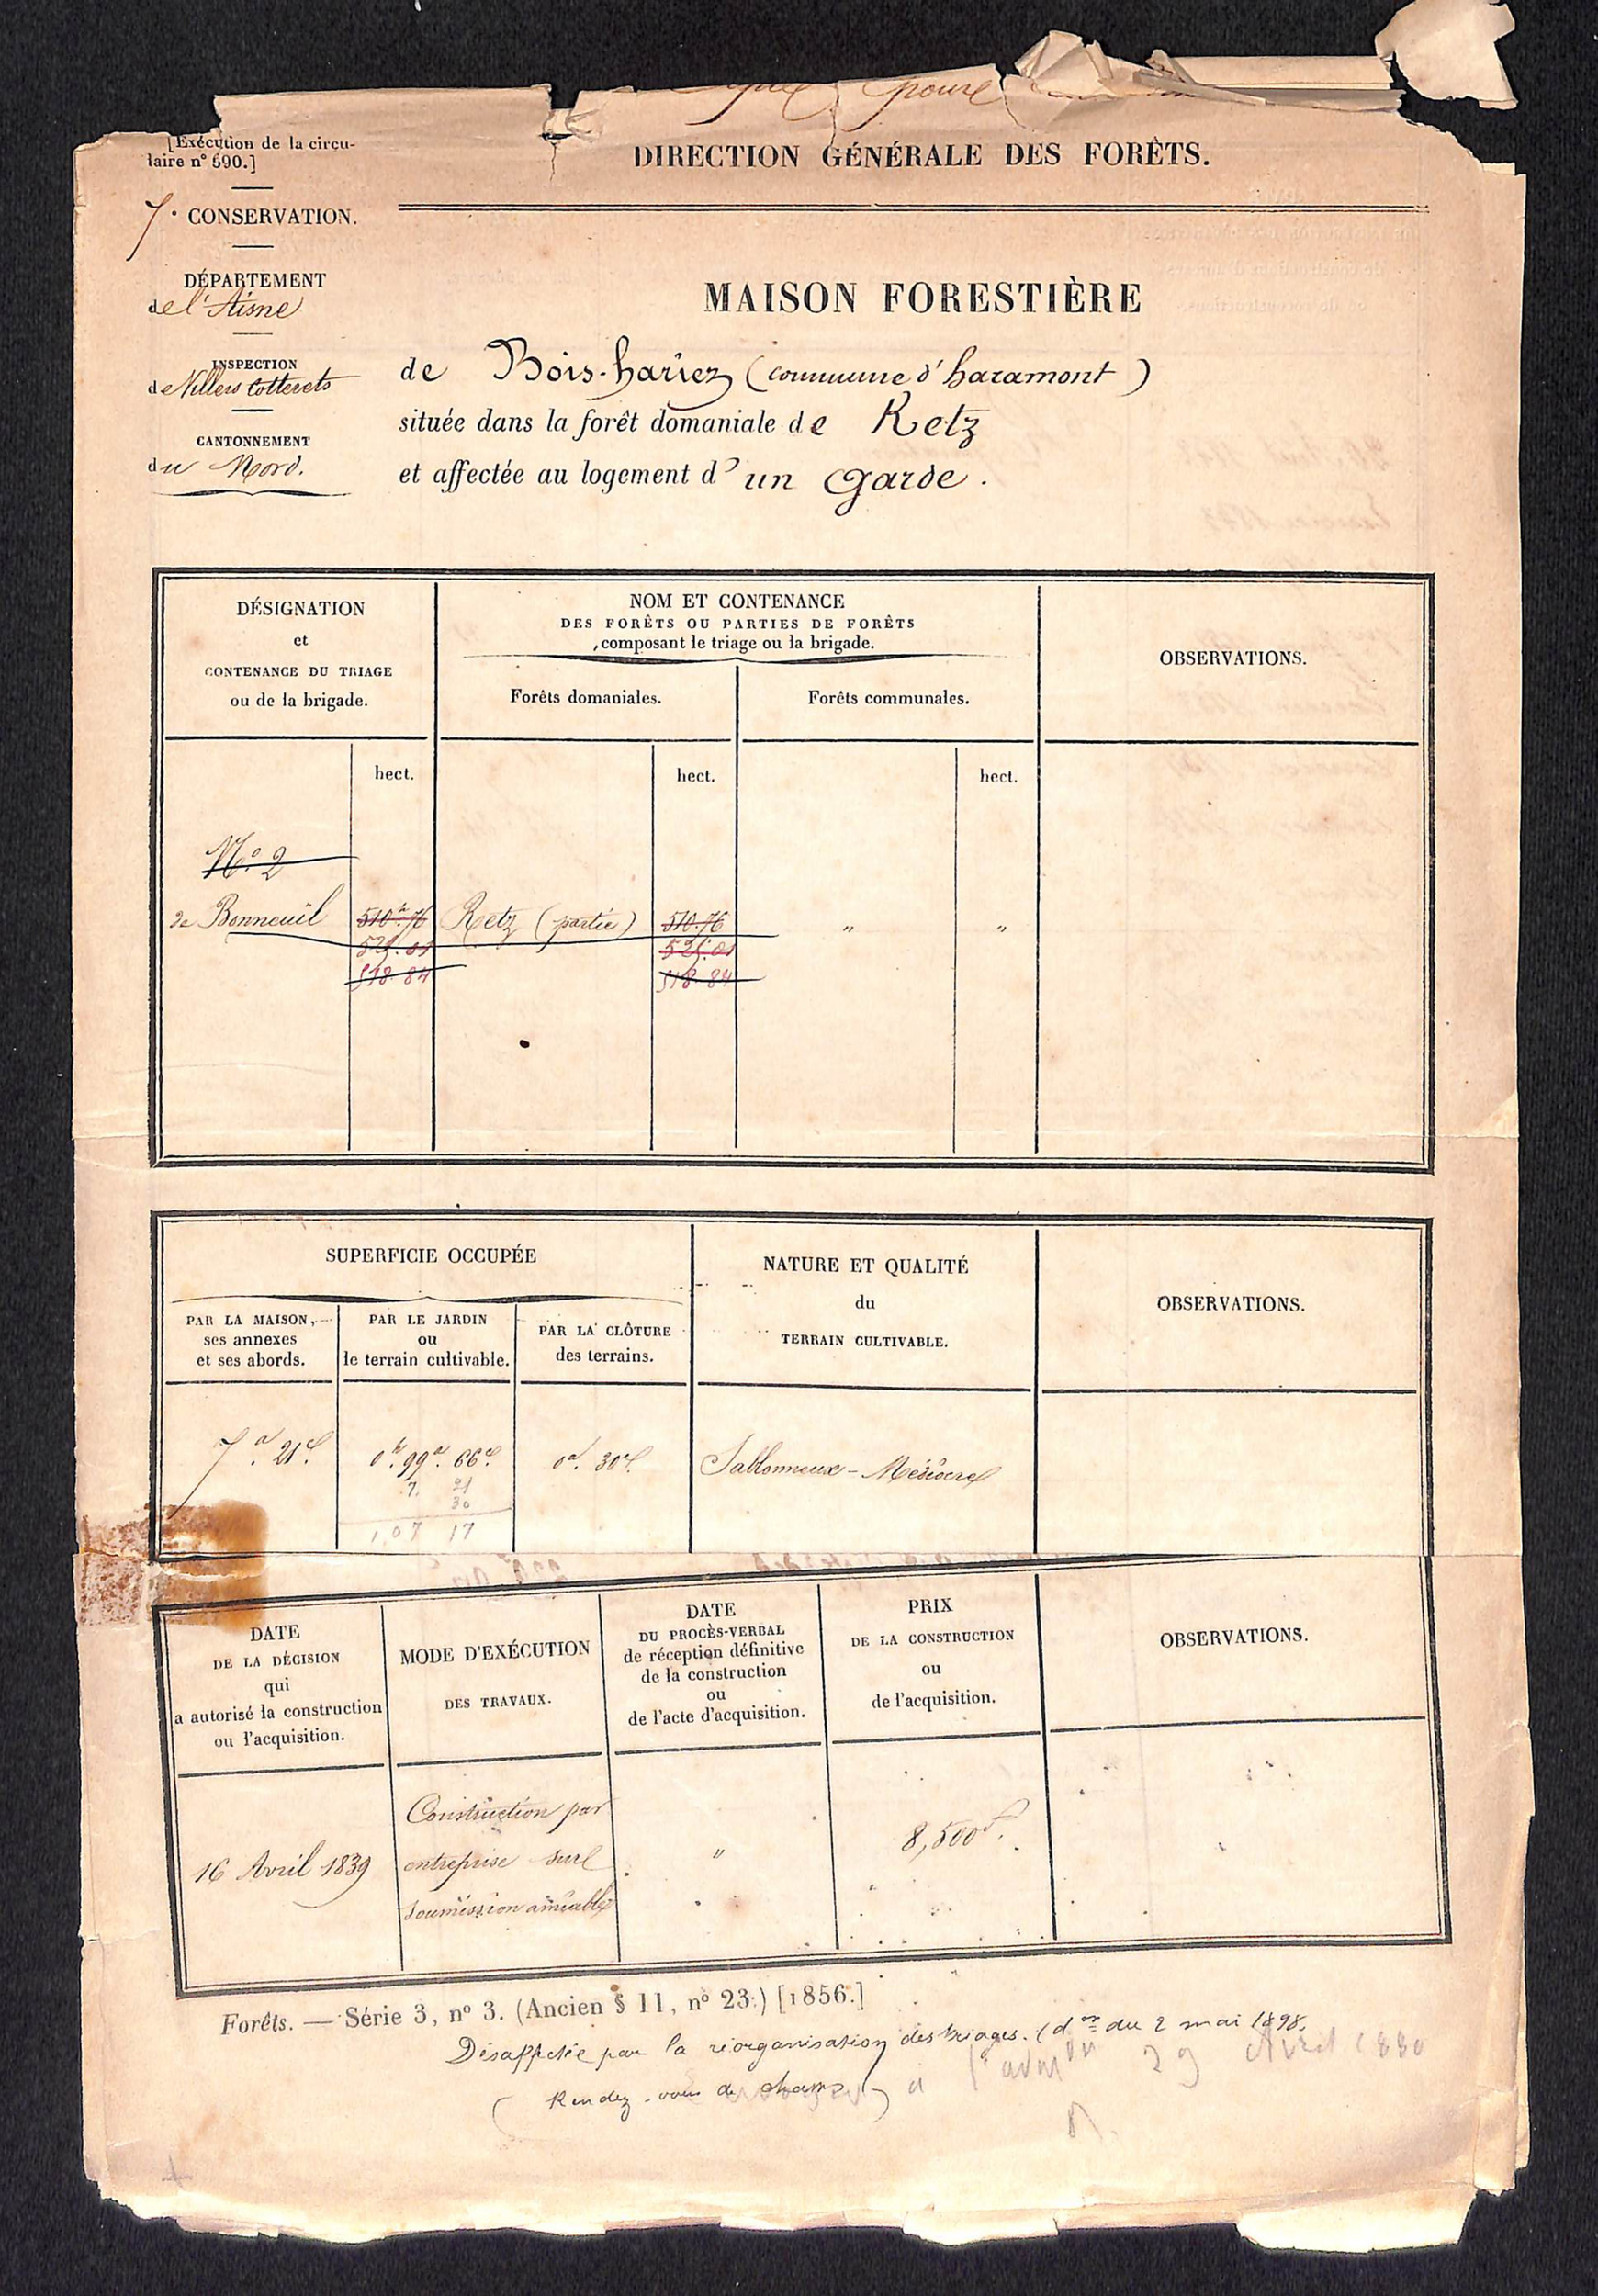 pour
[Exécution de la circu-
laire n° 590.]
DIRECTION GÉNÉRALE DES FORÊTS.
7e CONSERVATION.
DÉPARTEMENT
de l'Aisne
INSPECTION
de Villers Cotterets
CANTONNEMENT
du Nord.
MAISON FORESTIÈRE
de Bois-hariez (commune d'haramont)
située dans la forêt domaniale de Retz
et affectée au logement d'un Garde.
DÉSIGNATION
et
CONTENANCE DU TRIAGE
ou de la brigade.
NOM ET CONTENANCE
DES FORÊTS OU PARTIES DE FORÊTS
composant le triage ou la brigade.
Forêts domaniales.
Forêts communales.
OBSERVATIONS.
hect.
hect.
hect.
N° 2
de Bonneuil 510h.76 Retz (partie) 510.76 " "
525.01 525.01
518.84 518.84
SUPERFICIE OCCUPÉE
PAR LA MAISON,
ses annexes
et ses abords.
PAR LE JARDIN
ou
le terrain cultivable.
PAR LA CLÔTURE
des terrains.
NATURE ET QUALITÉ
du
TERRAIN CULTIVABLE.
OBSERVATIONS.
7a. 21c. 0h. 99a. 66c. 0a. 30c. Sablonneux - Médiocre
7. 21
30
1,07 17
DATE
DE LA DÉCISION
qui
a autorisé la construction
ou l'acquisition.
MODE D'EXÉCUTION
DES TRAVAUX.
DATE
DU PROCÈS-VERBAL
de réception définitive
de la construction
ou
de l'acte d'acquisition.
PRIX
DE LA CONSTRUCTION
ou
de l'acquisition.
OBSERVATIONS.
16 Avril 1839
Construction par
entreprise sur
soumission amiable
"
8,500f.
Forêts. — Série 3, n° 3. (Ancien § 11, n° 23.) [1856.]
Désaffectée par la réorganisation des triages. (don du 2 mai 1898.
(Rendez-vous de chasse)
à l'admon 29 Avril 1880